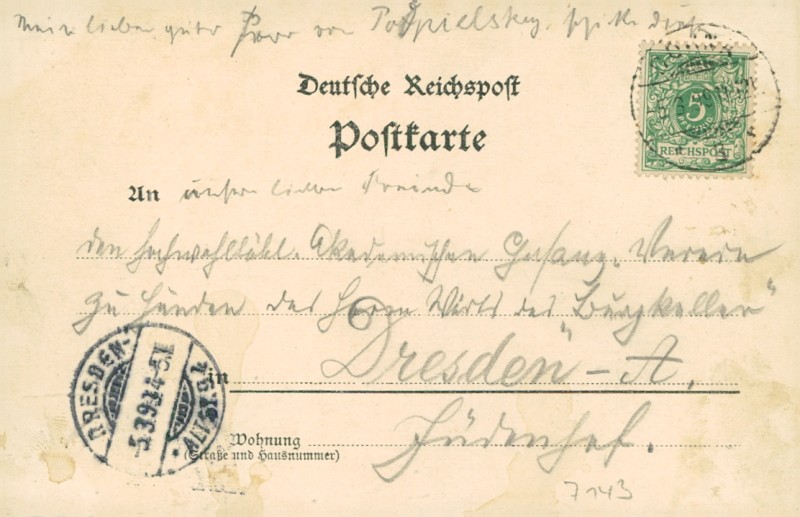 Mein lieber guter Herr von Podpielsky,
Deutsche Reichspost
Postkarte
5
REICHSPOST
An unsere lieben Freunde
den hochwohllöbl. Akademischen Gesang-Verein
zu Händen des Herrn Wirts des "Burgkeller"
in Dresden - A,
DRESDEN-
ALTST. 1
5.3.93.4-5.N
Wohnung Jüdenhof.
(Straße und Hausnummer)
7143